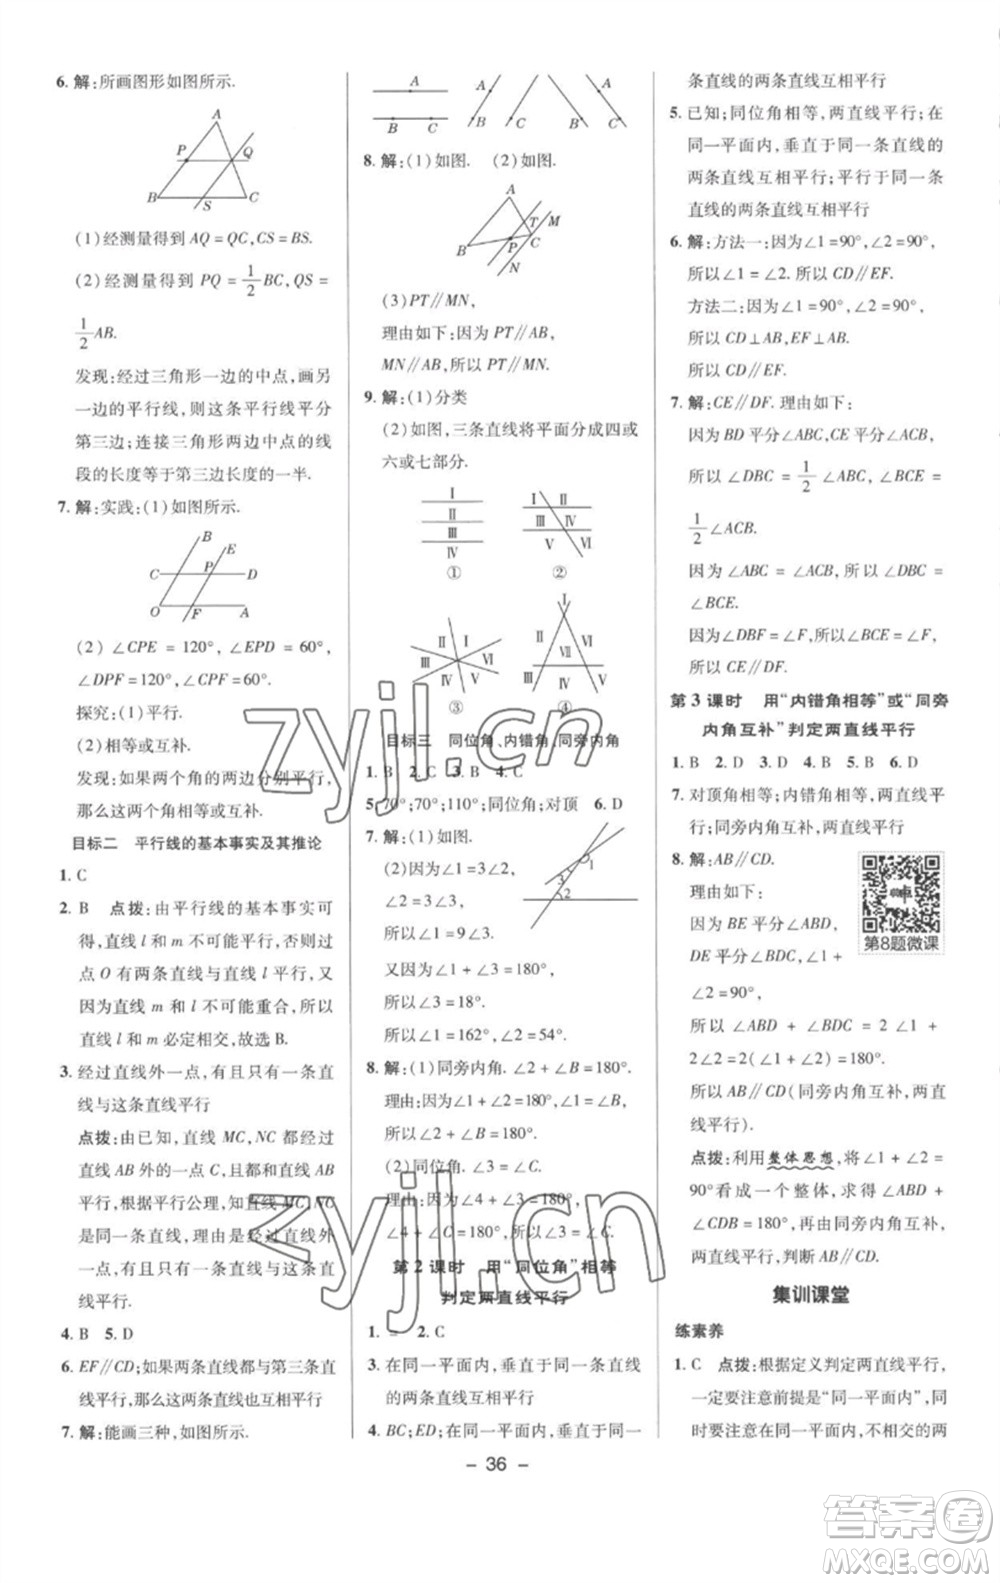 6. 解:所画图形如图所示.
A
P
Q
B
S
C
(1)经测量得到 AQ = QC,CS = BS.
(2)经测量得到 PQ = 1/2 BC,QS =
1/2 AB.
发现:经过三角形一边的中点,画另
一边的平行线,则这条平行线平分
第三边;连接三角形两边中点的线
段的长度等于第三边长度的一半.
7. 解:实践:(1)如图所示.
B
E
C
P
D
O
F
A
(2) ∠CPE = 120°, ∠EPD = 60°,
∠DPF = 120°,∠CPF = 60°.
探究:(1)平行.
(2)相等或互补.
发现:如果两个角的两边分别平行,
那么这两个角相等或互补.
目标二 平行线的基本事实及其推论
1. C
2. B 点拨:由平行线的基本事实可
得,直线 l 和 m 不可能平行,否则过
点 O 有两条直线与直线 l 平行.又
因为直线 m 和 l 不可能重合,所以
直线 l 和 m 必定相交,故选 B.
3. 经过直线外一点,有且只有一条直
线与这条直线平行
点拨:由已知,直线 MC,NC 都经过
直线 AB 外的一点 C,且与直线 AB
平行,根据平行公理,知直线 MC,NC
是同一条直线.理由是:经过直线外
一点,有且只有一条直线与这条直
线平行.
4. B 5. D
6. EF∥CD;如果两条直线都与第三条直
线平行,那么这两条直线也互相平行
7. 解:能画三种,如图所示.
A
B C
A
B
C
B
C
A
B
C
8. 解:(1)如图. (2)如图.
A
T M
B
P C
N
(3)PT∥MN,
理由如下:因为 PT∥AB,
MN∥AB,所以 PT∥MN.
9. 解:(1)分类
(2)如图,三条直线将平面分成四或
六或七部分.
Ⅰ
Ⅱ
Ⅲ
Ⅳ
①
Ⅰ Ⅱ
Ⅲ Ⅳ
Ⅴ Ⅵ
②
Ⅰ
Ⅱ
Ⅲ
Ⅳ
Ⅴ
Ⅵ
③
Ⅰ
Ⅱ
Ⅵ
Ⅶ
Ⅲ
Ⅳ
Ⅴ
④
目标三 同位角、内错角、同旁内角
1. B 2. C 3. B 4. C
5. 70°;70°;110°;同位角;对顶 6. D
7. 解:(1)如图.
1
3
2
(2)因为∠1=3∠2,
∠2=3∠3,
所以∠1=9∠3.
又因为∠1+∠3=180°,
所以∠3=18°.
所以∠1=162°,∠2=54°.
8. 解:(1)同旁内角. ∠2 + ∠5 = 180°.
理由:因为∠1=∠2,∠1+∠5=180°,
所以∠2+∠5=180°.
(2)同位角. ∠4 = ∠C.
理由:因为∠4 + ∠6 = 180°,
∠4 + ∠C = 180°,所以∠6=∠C.
第 2 课时 用“同位角”相等
判定两直线平行
1. = 2. C
3. 在同一平面内,垂直于同一条直线
的两条直线互相平行
4. BC;ED;在同一平面内,垂直于同一
条直线的两条直线互相平行
5. 已知;同位角相等,两直线平行;在
同一平面内,垂直于同一条直线的
两条直线互相平行;平行于同一条
直线的两条直线互相平行
6. 解:方法一:因为∠1=90°,∠2=90°,
所以∠1=∠2.所以 CD∥EF.
方法二:因为∠1=90°,∠2=90°,
所以 CD⊥AB,EF⊥AB.
所以 CD∥EF.
7. 解:CE∥DF. 理由如下:
因为 BD 平分∠ABC,CE 平分∠ACB,
所以 ∠DBC = 1/2 ∠ABC, ∠BCE =
1/2 ∠ACB.
因为 ∠ABC = ∠ACB,所以∠DBC =
∠BCE.
因为∠DBF=∠F,所以∠BCE=∠F.
所以 CE∥DF.
第 3 课时 用“内错角相等”或“同旁
内角互补”判定两直线平行
1. B 2. D 3. D 4. A 5. B 6. D
7. 对顶角相等;内错角相等,两直线平
行;同旁内角互补,两直线平行
8. 解:AB∥CD.
理由如下:
因为 BE 平分∠ABD,
DE 平分∠BDC,∠1+
∠2=90°,
第8题微课
所以 ∠ABD + ∠BDC = 2 ∠1 +
2∠2=2(∠1+∠2)=180°.
所以 AB∥CD(同旁内角互补,两直
线平行).
点拨:利用整体思想,将∠1 + ∠2 =
90°看成一个整体,求得∠ABD +
∠CDB = 180°,再由同旁内角互补,
两直线平行,判断 AB∥CD.
集训课堂
练素养
1. C 点拨:根据定义判定两直线平行,
一定要注意前提是“同一平面内”,同
时要注意在同一平面内,不相交的两
- 36 -
zyjl.cn
zyjl.cn
答案圈
MXQE.COM